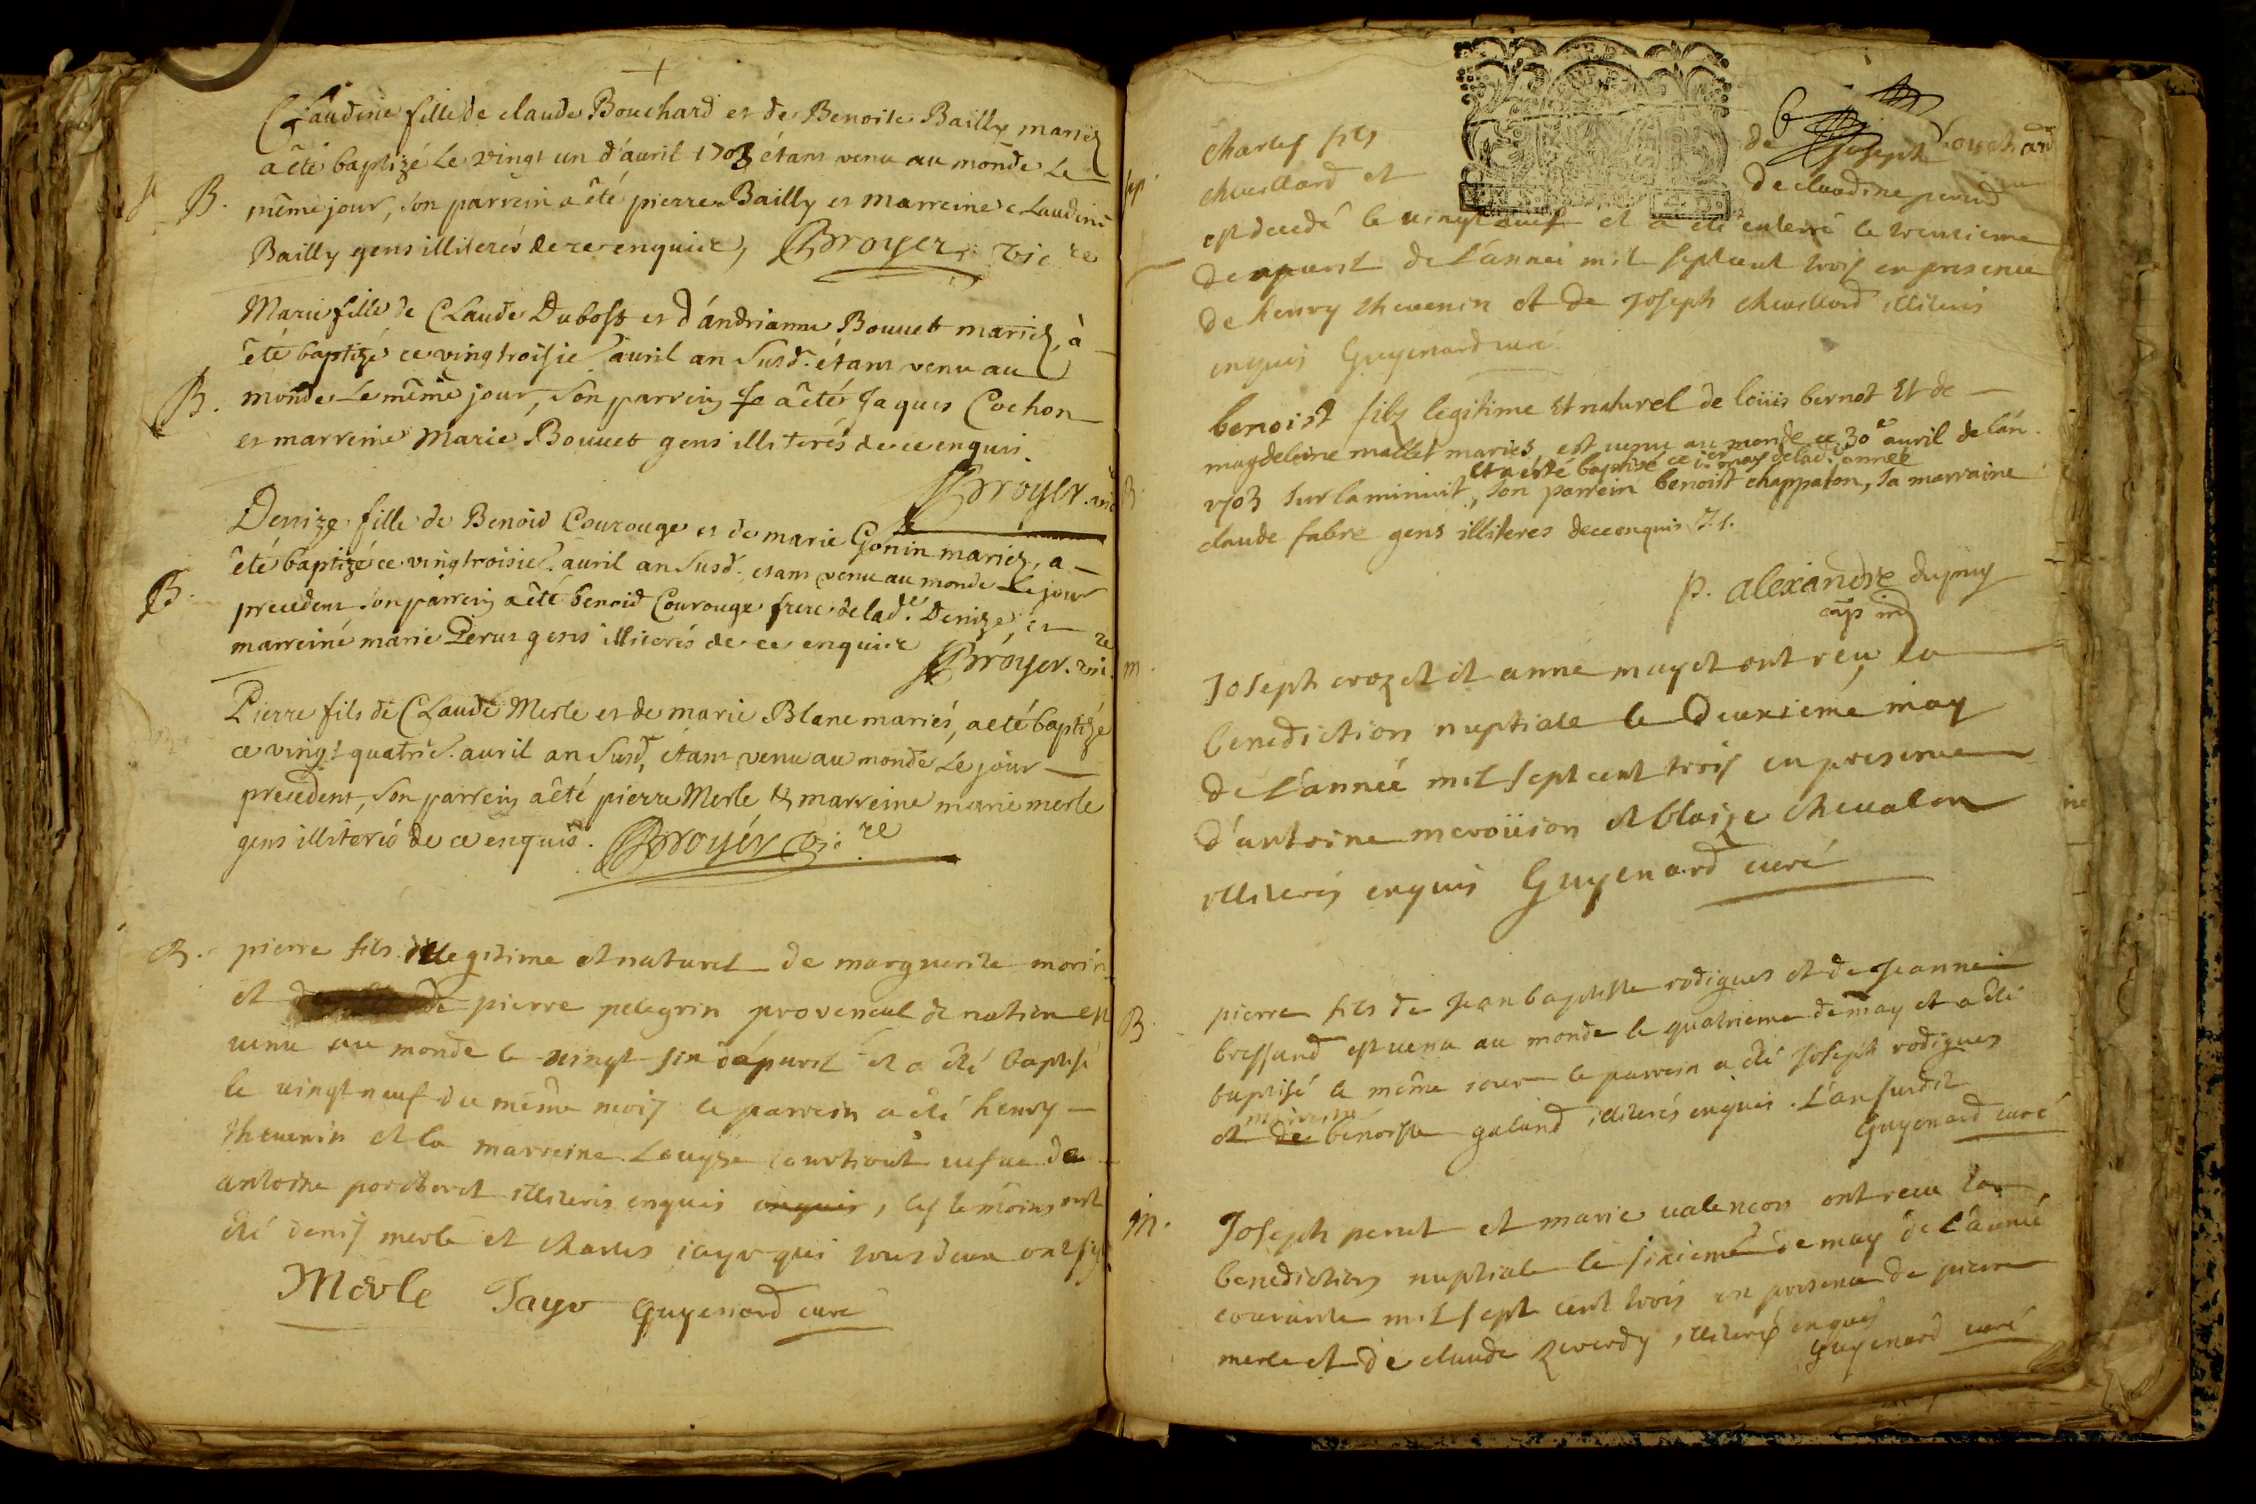 Claudine fille de claude Bouchard et de Benoite Bailly mariez
a été baptizé Le vingt un d'auril 1703 étant venu au monde Le
B. même jour, son parrein a été pierre Bailly et marreine claudine
Bailly gens illiterés de ce enquis, Broyer vic.re
Marie fille de Claude Dubost et d'andrianne Bouuet mariez, à
été baptizé ce vingtroisie. auril an susd. étant venu au
B. monde Le même jour, son parrein a été Jaques Cochon
et marreine Marie Bouuet gens illiterés de ce enquis.
Broyer vic
Denize fille de Benoid Courouge et de marie Gonin mariez, a
été baptizé ce vingtroisie. auril an susd. etant venu au monde Le jour
B. precedent son parrein a été benoid Courouge frere de lad.e Denize, et
marreine marie Perut gens illiterés de ce enquis
Broyer. vic.re
Pierre fils de Claude Merle et de marie Blanc mariés, a eté baptizé
ce vingt quatrie. auril an susd, étant venu au monde Le jour
precedent, son parrein a été pierre Merle & marreine marie merle
gens illiterés de ce enquis. Broyer vic.re
B. pierre fils illegitime et naturel de marguerite morin
et de pierre pelegrin provencal de nation est
uenu au monde le uingt six d'apuril et a été baptisé
le uingt neuf du même mois le parrein a été henry
theuenin et la marreine Louyse courtiout uefue de
antoine illiteris enquis enquis, les temoins ont
été denis merle et charles jayr qui tous deux ont sig
Merle Jayr Guyenard curé
charles fils de Joseph Bouchard
cheuillard et de claudine perud
est decedé le uingt neuf et a été enterré le trentieme
de apuril de L'année mil sept cent trois en presence
de henry theuenin et de Joseph cheuillard illiteris
enquis Guyenard curé
benoist filz legitime Et naturel de loüis bernot Et de
magdeleine mallet mariés, est uenu au monde ce 30e auril de l'an
Et a été baptisé ce i.er may de lad. année
B. 1703 sur la minuit, son parrein benoist chappaton, sa marraine
claude fabre gens illiteres de ce enquis
p. alexandre dupuy
cap ind
m. Joseph crozet et anne mayet ont reçu la
benediction nuptiale le deuxieme may
de L'année mil sept cent trois en presence
d'antoine meroüion et blaize cheualon
illiterés enquis Guyenard curé
B. pierre fils de Jean baptiste rodigues et de Jeanne
bressand est uenu au monde le quatrieme de may et a été
baptisé le même jour le parrein a été Joseph rodigues
mareine
et de benoiste galand illiterés enquis. L'an susdit
Guyenard curé
m. Joseph peret et marie ualencon ont receu la
benediction nuptiale le sixieme de may de L'année
courante mil sept cent trois en presence de pierre
merle et de claude illiterés enquis
Guyenard curé